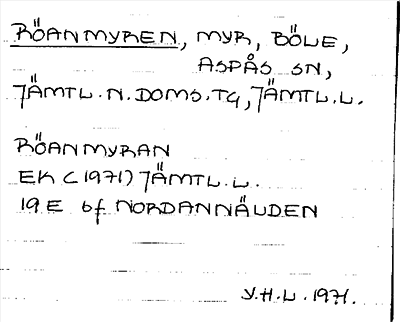 RÖANMYREN, MYR, BÖLE,
ASPÅS SN,
JÄMTL.N.DOMS.TG, JÄMTL.L.
RÖANMYRAN
EK (1971) JÄMTL.L.
19E 6f NORDANNÄLDEN
Y.H.L. 1971.